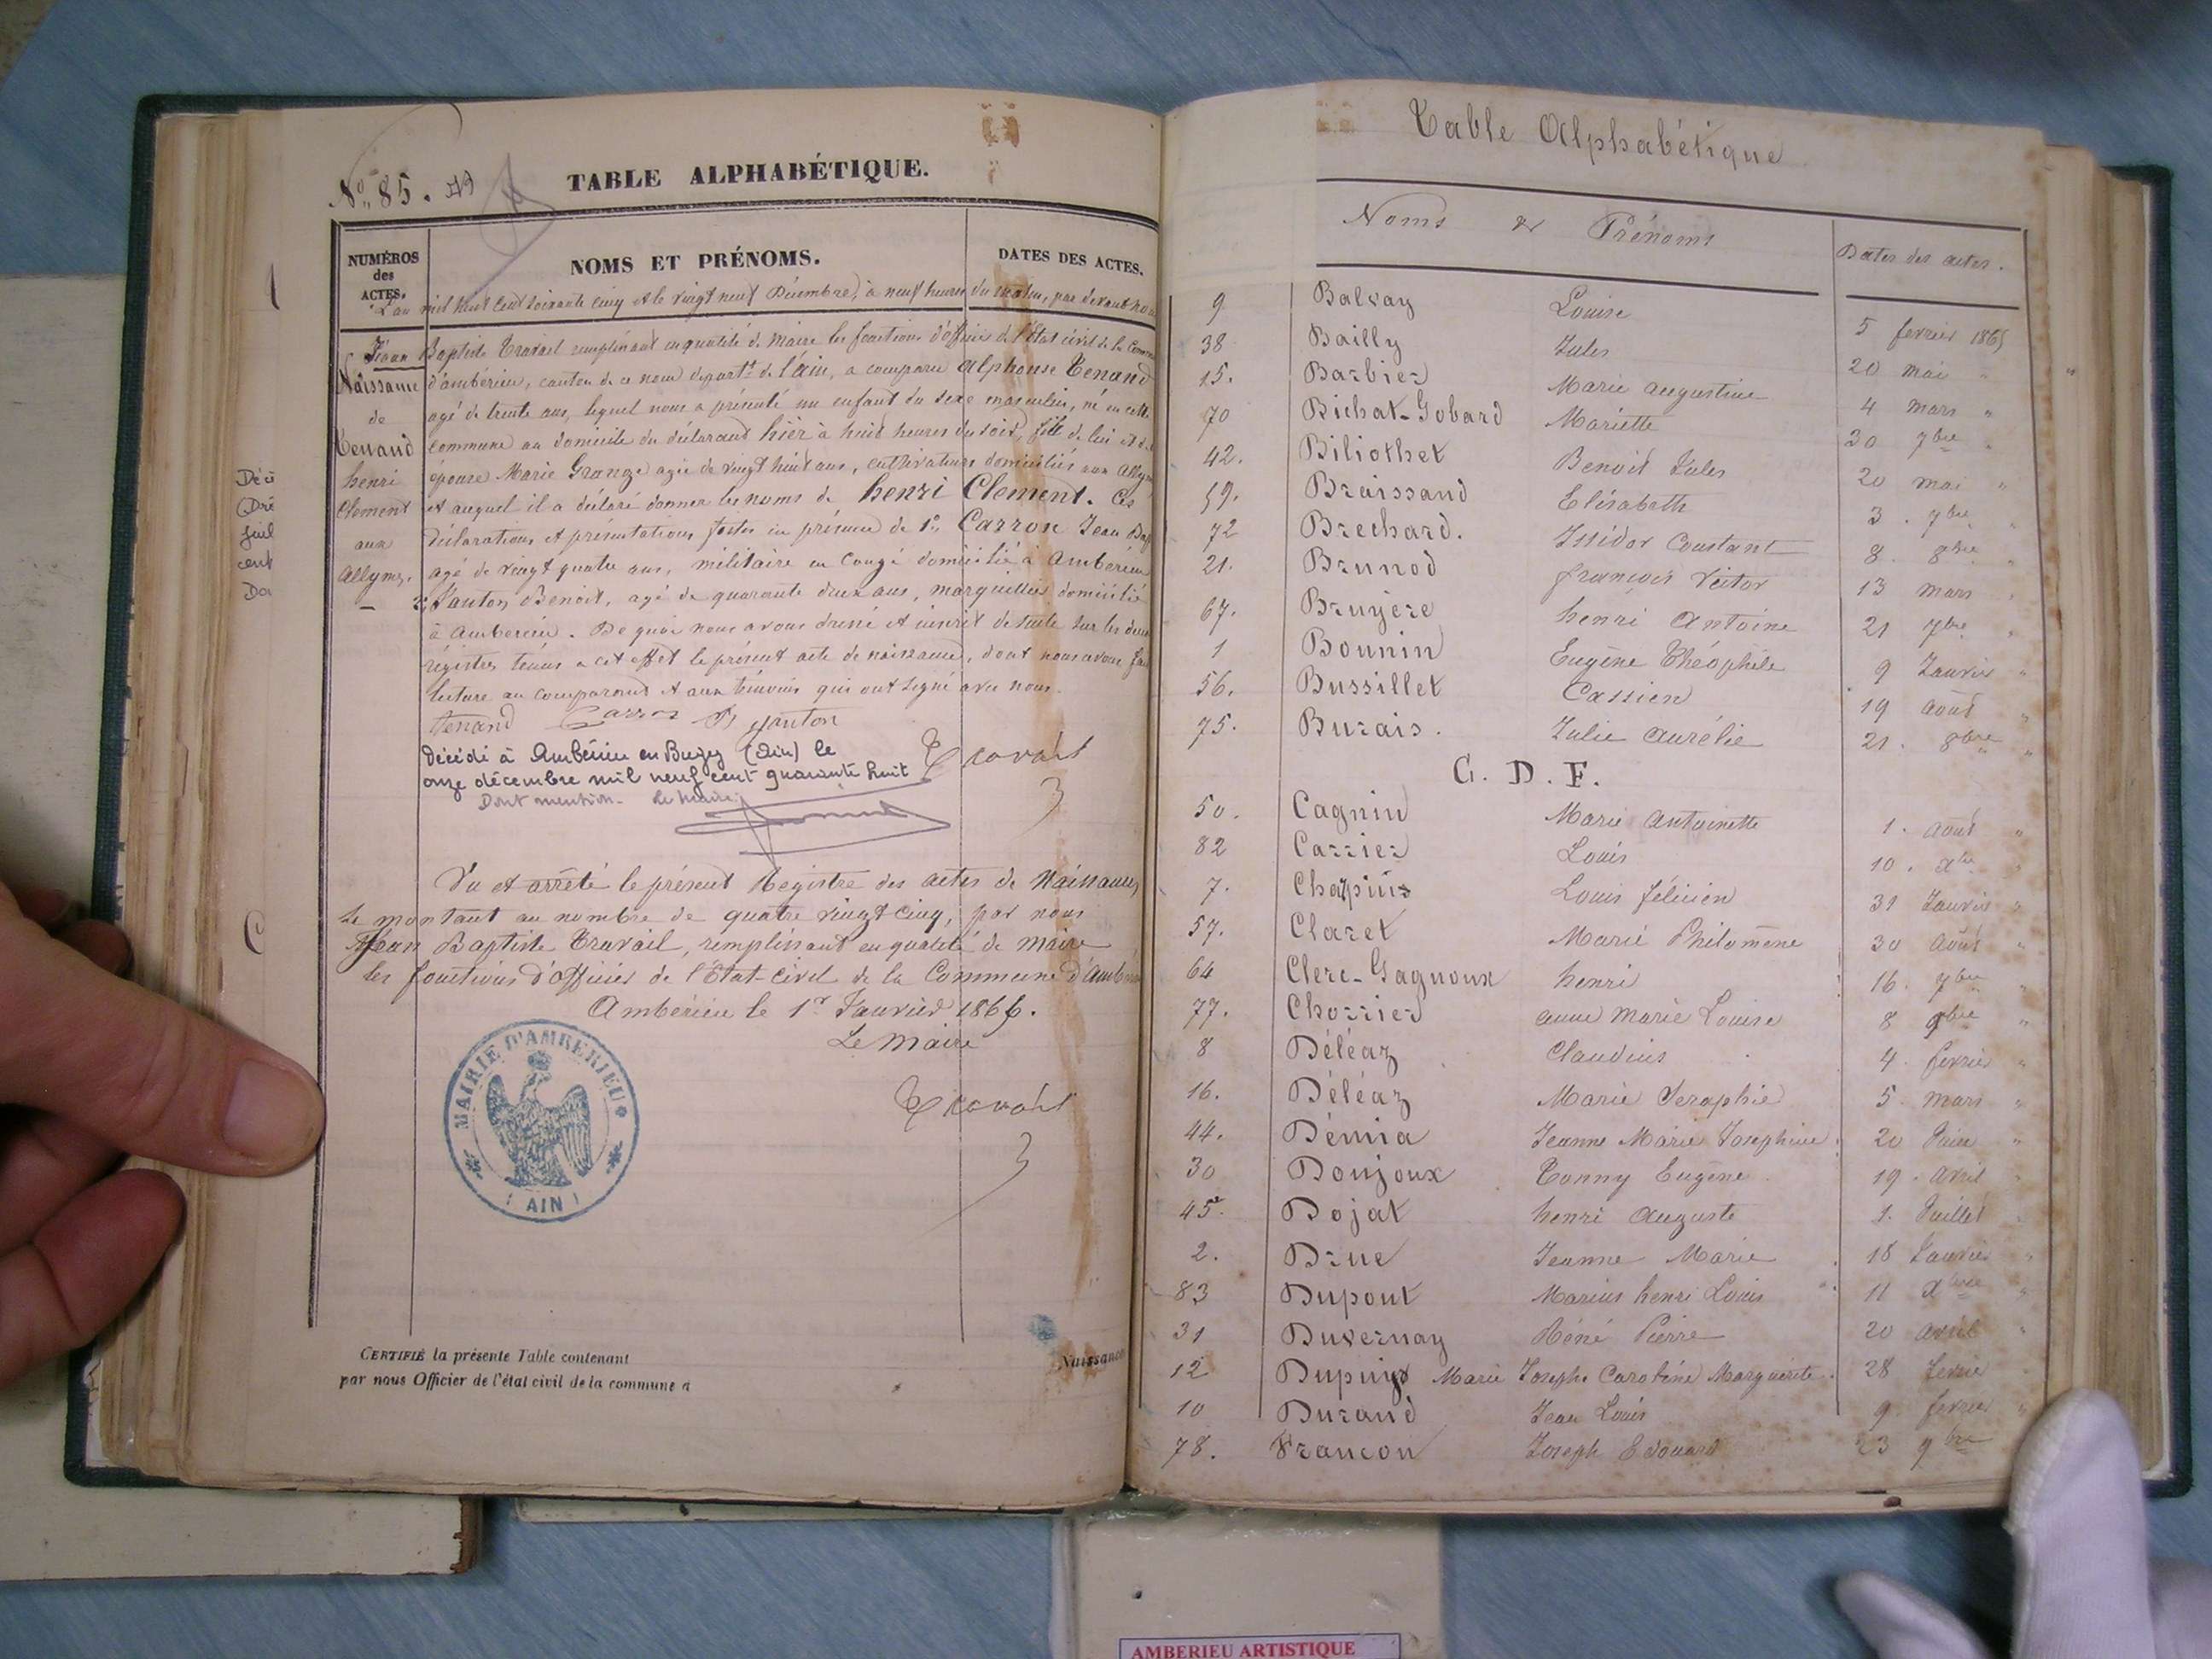 N° 85.
TABLE ALPHABÉTIQUE.
NUMÉROS
des
ACTES.
NOMS ET PRÉNOMS.
DATES DES ACTES.
L'an mil huit cent soixante cinq et le vingt neuf Décembre, à neuf heures du matin, par devant nous
Jean Baptiste Travail remplissant en qualité de maire les fonctions d'officier de l'état civil de la Commune
d'ambérieu, canton de ce nom départt de l'ain, a comparu alphonse Tenand
agé de trente ans, lequel nous a présenté un enfant du sexe masculin, né en cette
commune au domicile du déclarant hier à huit heures du soir, fils de lui et de
épouse Marie Grange agée de vingt huit ans, cultivateurs domiciliés aux Allym
et auquel il a déclaré donner les noms de henri Clement. Ces
déclarations et présentations faites en présence de 1° Carron Jean Bap
agé de vingt quatre ans, militaire en congé domicilié à Ambérieu
2° Janton Benoit, agé de quarante deux ans, marguillier domicilié
à Ambérieu. De quoi nous avons dressé et inscrit de suite sur les deux
régistres tenus a cet effet le présent acte de naissance, dont nous avons fait
lecture au comparant et aux témoins qui ont signé avec nous.
Tenand Carron B Janton
Travail
Naissance
de
Tenand
henri
Clement
aux
Allymes.
Décédé à Ambérieu en Bugey (Ain) le
onze décembre mil neuf cent quarante huit
Dont mention. Le Maire
Vu et arrêté le présent Registre des actes de Naissances
se montant au nombre de quatre vingt cinq, par nous
Jean Baptiste Travail, remplissant en qualité de maire
les fonctions d'officier de l'État-civil de la Commune d'Ambérieu
Ambérieu le 1er Janvier 1866.
Le Maire
Travail
MAIRIE D'AMBERIEU
(AIN)
CERTIFIÉ la présente Table contenant
Naissance
par nous Officier de l'état civil de la commune d
Table Alphabétique
Noms et Prénoms
Dates des actes.
9 Balvay Louise 5 fevrier 1865
38 Bailly Jules 20 mai "
15. Barbier Marie augustine 4 mars "
70 Bichat-Gobard Mariette 30 7bre "
42. Biliothet Benoit Jules 20 mai "
59. Braissand Elisabeth 3. 7bre "
72 Brechard. Issidor Constant 8. 8bre "
21. Brunod françois Victor 13 mars "
67. Bruyère henri Antoine 21 7bre "
1 Bonnin Eugène Théophile 9 Janvier "
56. Bussillet Cassien 19 août "
75. Burais. Julie Aurélie 21. 8bre "
C. D. F.
50. Cagnin Marie Antoinette 1. août "
82 Carrier Louis 10. Xbre "
7. Chapuis Louis félicien 31 Janvier "
57. Claret Marie Philomène 30 août "
64 Clerc-Gagnoux henri 16. 7bre "
77. Chorrier anne Marie Louise 8 9bre "
8 Déléaz Claudius 4. fevrier "
16. Déléaz Marie Seraphie 5. mars "
44. Démia Jeanne Marie Josephine 20 Juin "
30 Donjoux Tonny Eugène 19. avril "
45. Dojat henri Auguste 1. Juillet "
2. Drue Jeanne Marie 18 Janvier "
83 Dupont Marius henri Louis 11 Xbre "
31 Duvernay Réné Pierre 20 avril "
12 Dupuy Marie Josephe Caroline Marguerite 28 fevrier
10 Durand Jean Louis 9 fevrier "
78. Francon Joseph Edouard 23 9bre
AMBERIEU ARTISTIQUE